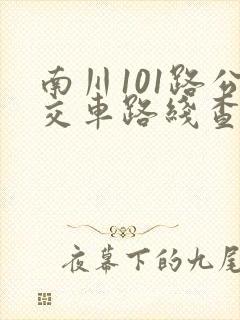 南川101路公
交车路线查
夜幕下的九尾